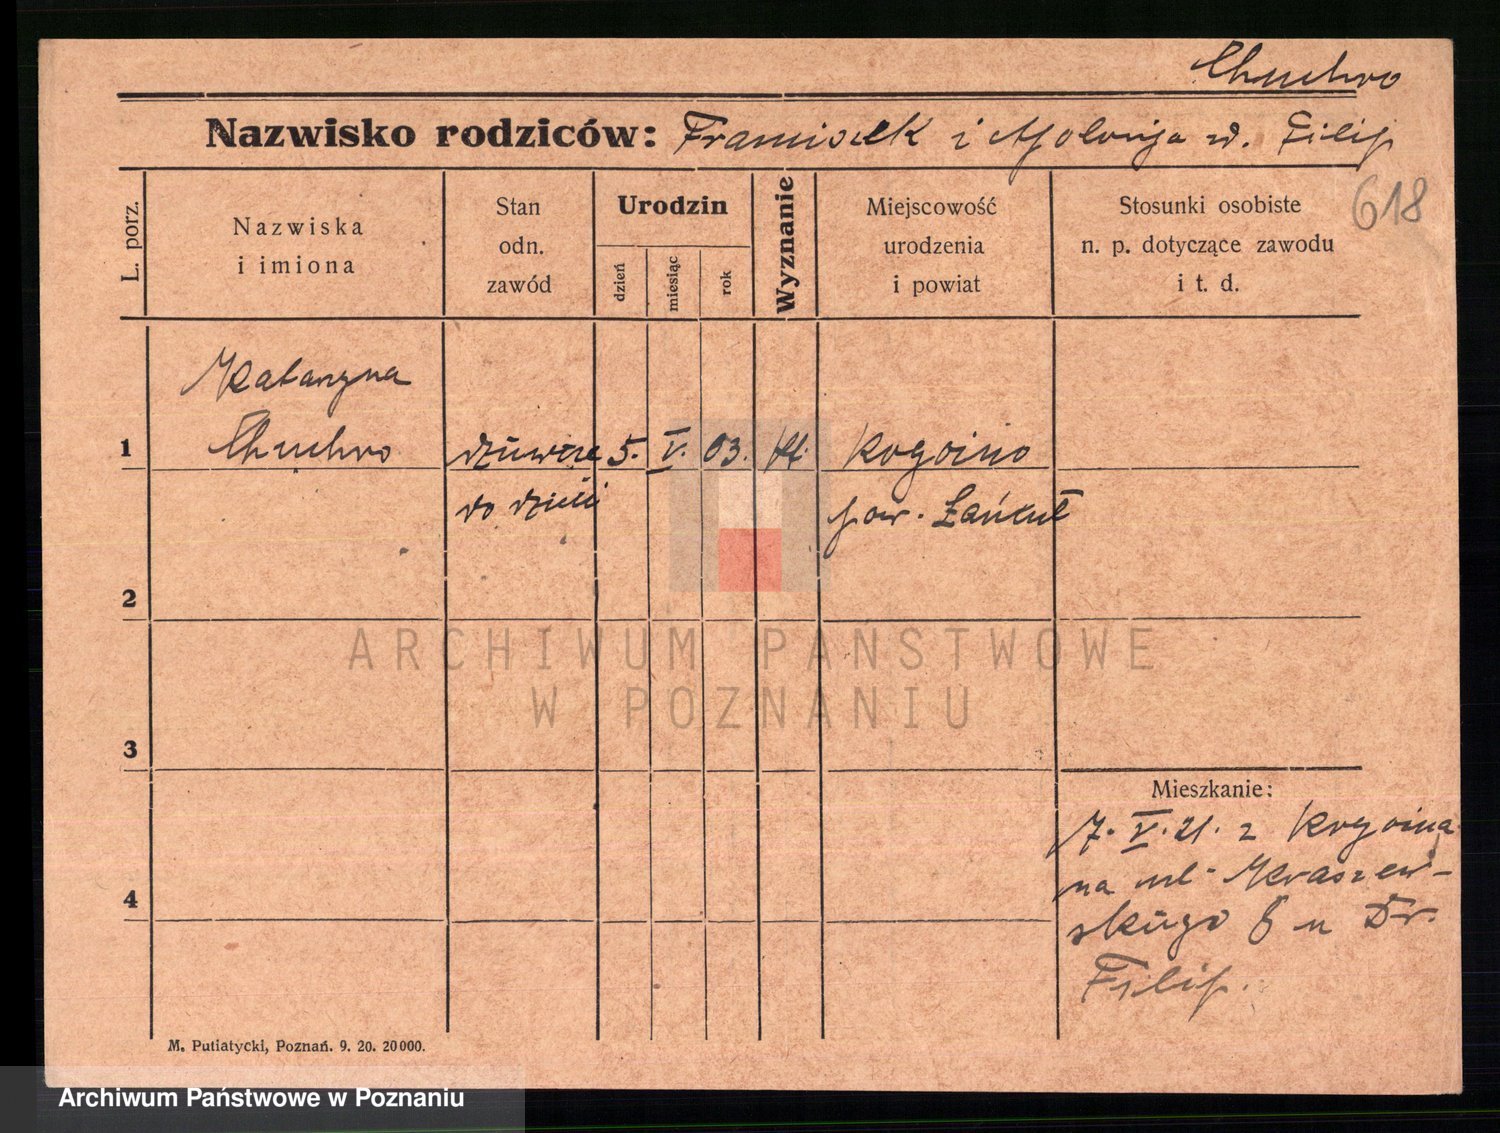 Chuchro
Nazwisko rodziców: Franciszek i Apolonja z d. Filip
618
L. porz.
Nazwiska
i imiona
Stan
odn.
zawód
Urodzin
dzień
miesiąc
rok
Wyznanie
Miejscowość
urodzenia
i powiat
Stosunki osobiste
n. p. dotyczące zawodu
i t. d.
Katarzyna
1 Chuchro dziewcze 5. V. 03. kt.
do dzieci pow. Łańcut
2
3
Mieszkanie:
7. V. 21. z
na ul. Kraszew-
4
skiego 8 u Dr.
Filip.
M. Putiatycki, Poznań. 9. 20. 20000.
ARCHIWUM PAŃSTWOWE
W POZNANIU
Archiwum Państwowe w Poznaniu